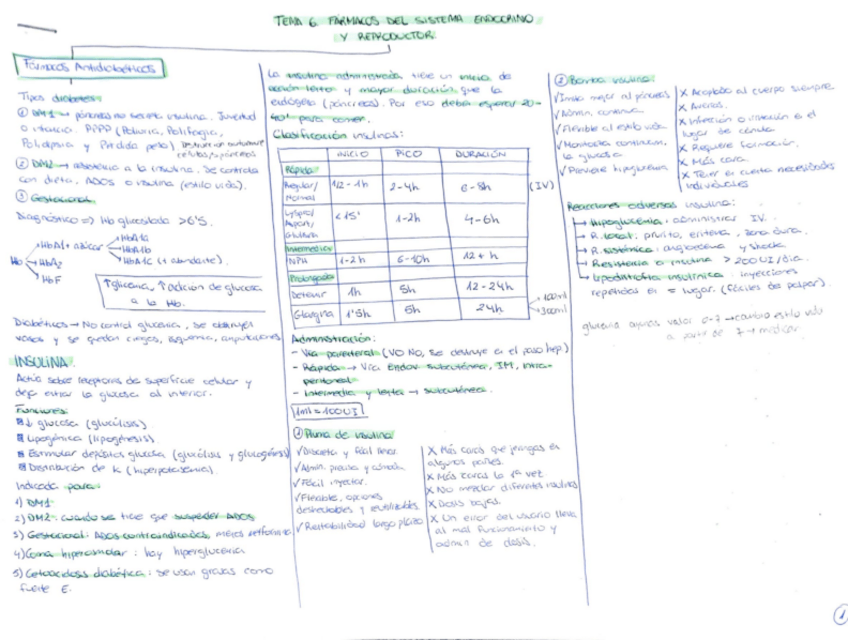 TEMA 6. FÁRMACOS DEL SISTEMA ENDOCRINO
Y REPRODUCTOR.
Fármacos Antidiabéticos
Tipos diabetes:
① DM1 → páncreas no secreta insulina. Juventud
o infancia. PPPP (Poliuria, Polifagia,
Polidipsia y Pérdida peso).
② DM2 → resistencia a la insulina. Se controla
con dieta, ADOS o insulina (estilo vida).
③ Gestacional.
Diagnóstico => Hb glucosilada >6'5.
Hb
HbA1 + azúcar
HbA1a
HbA1b
HbA1c (+ abundante).
HbA2
HbF
↑ glucemia, ↑ adición de glucosa
a la Hb.
Diabéticos → No control glucemia, se obstruyen
vasos y se quedan ciegos, isquemia, amputaciones
INSULINA.
Actúa sobre receptores de superficie celular y
deja entrar la glucosa al interior.
Funciones:
↓ glucosa (glucólisis)
Lipogénica (lipogénesis)
Estimular depósitos glucosa (glucólisis y glucogénesis)
Distribución de K (hiperpotasemia).
Indicada para:
1) DM1
2) DM2: cuando se tiene que suspender ADOS
3) Gestacional: ADOS contraindicados, menos metformina
4) Coma hiperosmolar: hay hiperglucemia
5) Cetoacidosis diabética: se usan grasas como
fuente E.
La insulina administrada tiene un inicio de
acción lento y mayor duración que la
endógena (páncreas). Por eso debe esperar 20-
40' para comer.
Clasificación insulinas:
INICIO PICO DURACIÓN
Rápida
Regular/ Normal 1/2 - 1h 2-4h 6-8h (IV)
Lyspro/ Aspart/ Glulisina <15' 1-2h 4-6h
Intermedia
NPH 1-2h 6-10h 12 + h
Prolongada
Detemir 1h 5h 12-24h
Glargina 1'5h 5h 24h
→ 100ml
→ 300ml
Administración:
- Vía parenteral (VO NO, se destruye en el paso hep.)
- Rápida → Vía Endov. subcutánea, IM, intra-
peritoneal
- Intermedia y lenta → subcutánea.
1ml = 100UI
① Pluma de insulina
✓ Discreta y fácil llevar.
✓ Admin. precisa y cómoda.
✓ Fácil inyectar.
✓ Flexible, opciones
desechables y reutilizables.
✓ Rentabilidad largo plazo
X Más caras que jeringas en
algunos países.
X Más caras la 1ª vez.
X No mezclar diferentes insulinas
X Dosis bajas.
X Un error del usuario lleva
al mal funcionamiento y
admin de dosis.
② Bomba insulina:
✓ Imita mejor al páncreas
✓ Admin. continua.
✓ Flexible al estilo vida
✓ Monitoriza continuam.
la glucosa
✓ Previene hipoglucemia
X Acoplado al cuerpo siempre
X Averías.
X Infección o irritación en el
lugar de cánula
X Requiere formación.
X Más cara
X Tener en cuenta necesidades
individuales
Reacciones adversas insulina:
→ Hipoglucemia: administrar IV.
→ R. local: prurito, eritema, zona dura.
→ R. sistémica: angioedema y shock.
→ Resistencia a insulina > 200UI/día.
→ Lipodistrofia insulínica: inyecciones
repetidas en = lugar. (fáciles de palpar).
glucemia ayunas valor 6-7 → cambio estilo vida
a partir de 7 → medicar.
1